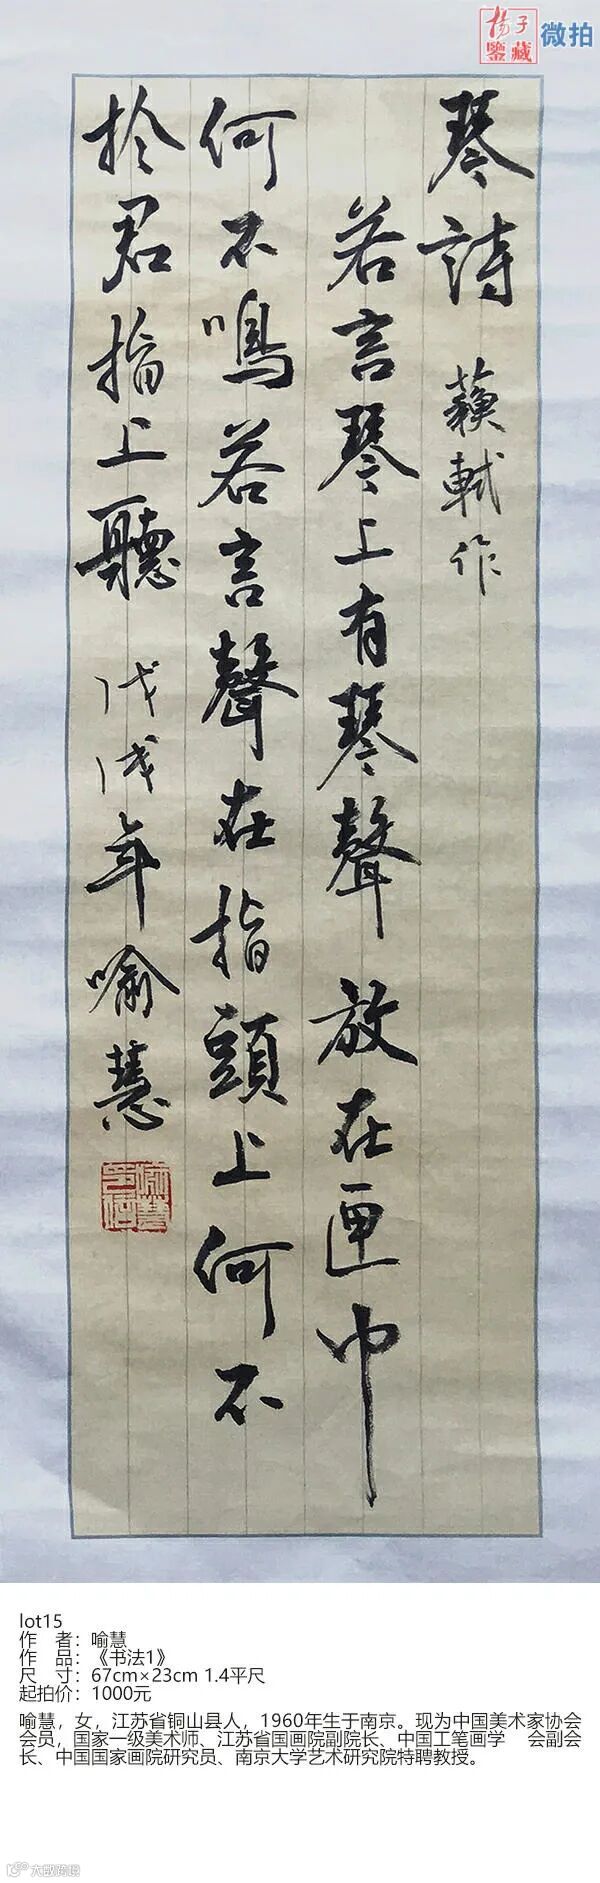 揚子
鑒藏
微拍
琴詩 蘇軾作
若言琴上有琴聲放在匣中
何不鳴若言聲在指頭上何不
於君指上聽 戊戌年喻慧
lot15
作 者：喻慧
作 品：《书法1》
尺 寸：67cm×23cm 1.4平尺
起拍价：1000元
喻慧，女，江苏省铜山县人，1960年生于南京。现为中国美术家协会
会员，国家一级美术师、江苏省国画院副院长、中国工笔画学 会副会
长、中国国家画院研究员、南京大学艺术研究院特聘教授。
大数跨境